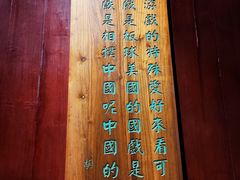 游戲的特殊愛好來看可
戲是板球美國的國戲是
戲是相撲中國呢中國的